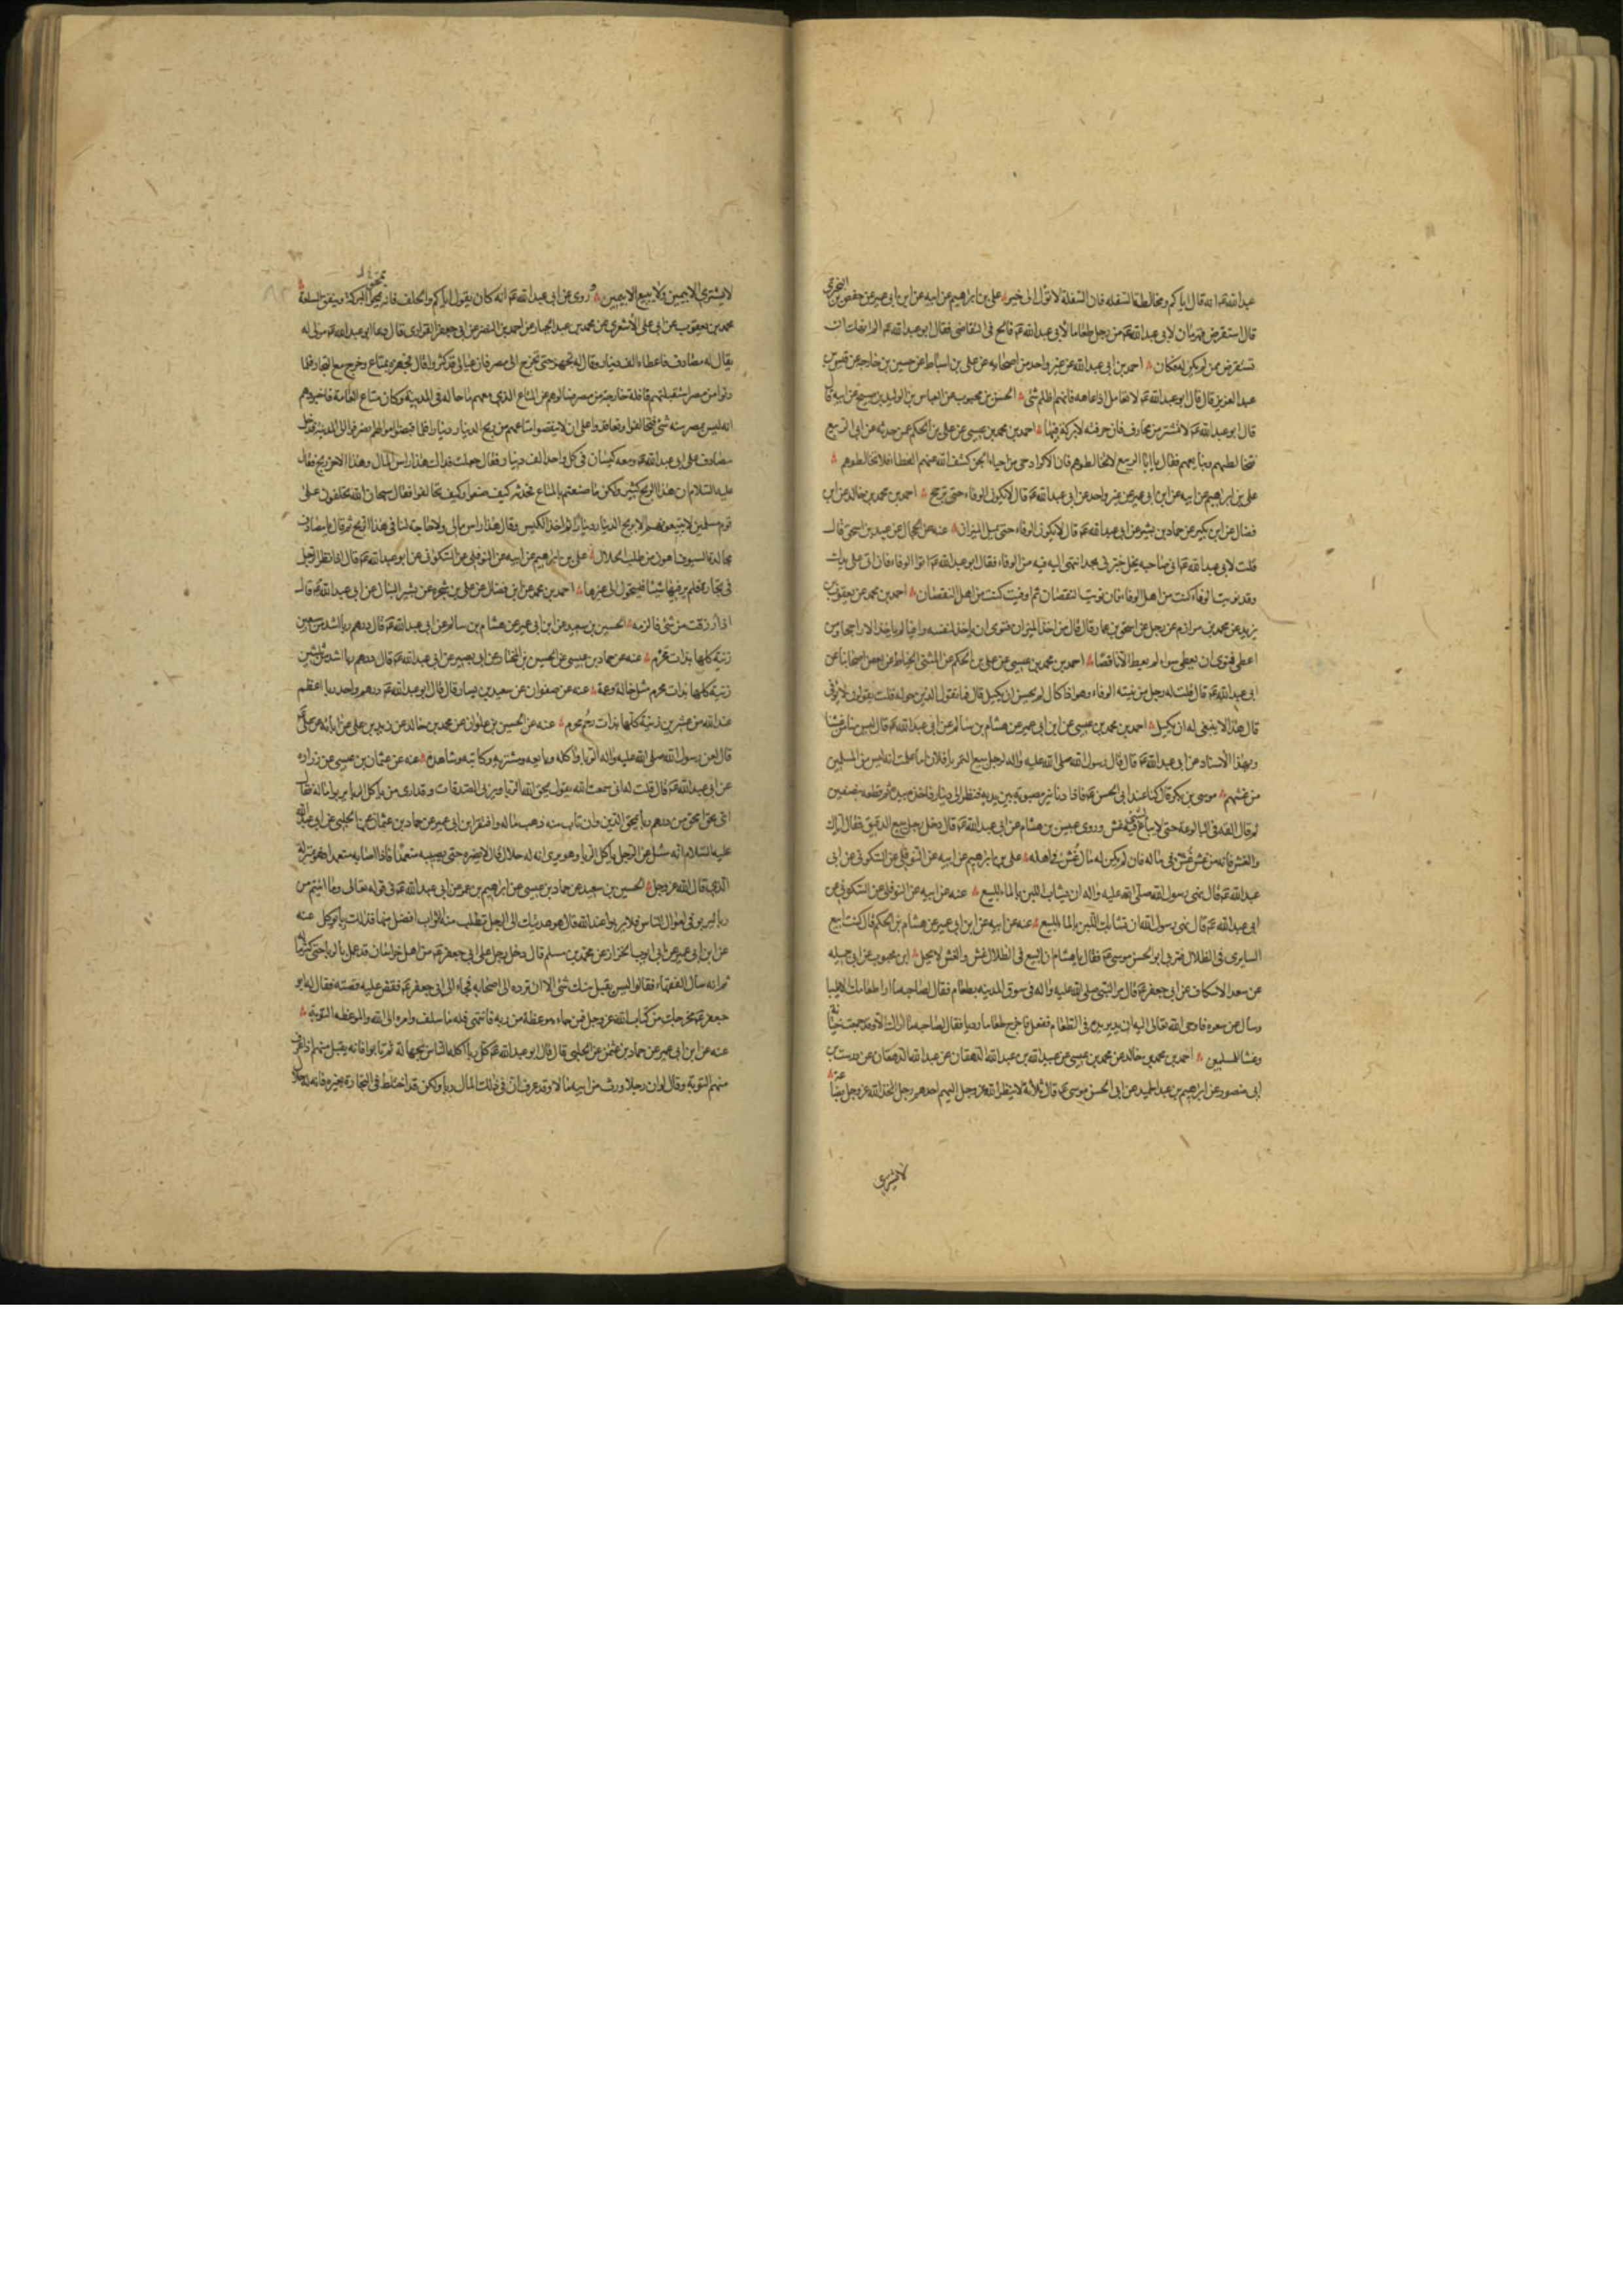 عبد الله عم انه قال اياكم ومخالطة السفله فان السفلة لا تؤل الى خير علي بن ابراهيم عن ابيه عن ابن ابي عمير عن حفص بن البختري
قال استقرض قهرمان لابي عبد الله عم من رجل طعاما لابي عبد الله عم فالح في التقاضي فقال ابو عبد الله عم الم انهك ان
تستقرض ممن لم يكن له فكان احمد بن ابي عبد الله عن غير واحد من اصحابه عن علي بن اسباط عن حسين بن خارجه عن قيس بن
عبد العزيز قال قال ابو عبد الله عم لا تعامل ذا عاهه فانهم اظلم شئ الحسن بن محبوب عن العباس بن الوليد بن صبيح عن ابيه قال
قال ابو عبد الله عم لا تشتر من محارف فان حرفته لا بركة فيها احمد بن محمد بن عيسى عن علي بن الحكم عمن حدثه عن ابي الربيع
فنخالطهم ونبايعهم فقال يا ابا الربيع لا تخالطوهم فان الاكراد حي من احياء الجن كشف الله عنهم الغطاء فلا تخالطوهم
علي بن ابراهيم عن ابيه عن ابن ابي عمير عن غير واحد عن ابي عبد الله عم قال لا يكون الوفاء حتى يرجح احمد بن محمد بن خالد عن ابن
فضال عن ابن بكير عن حماد بن بشير عن ابي عبد الله عم قال لا يكون الوفاء حتى يميل الميزان عنه عن الحجال عن عبيد بن اسحق قال
قلت لابي عبد الله عم اني صاحب نخل فخبرني بحد انتهى اليه فيه من الوفاء فقال ابو عبد الله عم انو الوفاء فان اتى على يديك
وقد نويت الوفاء كنت من اهل الوفاء فان نويت النقصان ثم اوفيت كنت من اهل النقصان احمد بن محمد عن يعقوب بن
يزيد عن محمد بن مرازم عن رجل عن اسحق بن عمار قال قال من اخذ الميزان فنوى ان ياخذ لنفسه وافيا لم ياخذ الا راجحا ومن
اعطى فنوى ان يعطي سواء لم يعط الا ناقصا احمد بن محمد بن عيسى عن علي بن الحكم عن المثنى الحناط عن بعض اصحابنا عن
ابي عبد الله عم قال قلت له رجل من نيته الوفاء وهو اذا كال لم يحسن ان يكيل قال فما يقول الذين حوله قلت يقولون لا يوفي
قال هذا لا ينبغي له ان يكيل احمد بن محمد بن عيسى عن ابن ابي عمير عن هشام بن سالم عن ابي عبد الله عم قال ليس منا من غشنا
وبهذا الاسناد عن ابي عبد الله عم قال قال رسول الله صلى الله عليه واله لرجل يبيع التمر يا فلان اما علمت انه ليس من المسلمين
من غشهم موسى بن بكر قال كنا عند ابي الحسن عم فاذا دنانير مصبوبة بين يديه فنظر الى دينار فاخذه بيده ثم قطعه بنصفين
ثم قال القه في البالوعة حتى لا يباع شئ فيه غش وروى عبيس بن هشام عن ابي عبد الله عم قال دخل رجل يبيع الدقيق فقال اياك
والغش فانه من غش غش في ماله فان لم يكن له مال غش في اهله علي بن ابراهيم عن ابيه عن النوفلي عن السكوني عن ابي
عبد الله عم قال نهى رسول الله صلى الله عليه واله ان يشاب اللبن بالماء للبيع عنه عن ابيه عن النوفلي عن السكوني عن
ابي عبد الله عم قال نهى رسول الله ان يشاب اللبن بالماء للبيع عنه عن ابيه عن ابن ابي عمير عن هشام بن الحكم قال كنت ابيع
السابري في الظلال فمر بي ابو الحسن موسى عم فقال يا هشام ان البيع في الظلال غش والغش لا يحل ابن محبوب عن ابي جميله
عن سعد الاسكاف عن ابي جعفر عم قال مر النبي صلى الله عليه واله في سوق المدينه بطعام فقال لصاحبه ما ارى طعامك الا طيبا
وسال عن سعره فاوحى الله تعالى اليه ان يدير يده في الطعام ففعل فاخرج طعاما رديا فقال لصاحبه ما اراك الا وقد جمعت خيانة
وغشا للمسلمين احمد بن محمد بن خالد عن محمد بن عيسى عن عبيد الله بن عبد الله الدهقان عن عبد الله الدهقان عن درست بن
ابي منصور عن ابراهيم بن عبد الحميد عن ابي الحسن موسى عم قال ثلاثة لا ينظر الله عز وجل اليهم احدهم رجل اتخذ الله عز وجل
لا يشتري
لا يشتري الا بيمين ولا يبيع الا بيمين وروي عن ابي عبد الله عم انه كان يقول اياكم والحلف فانه يمحق البركة وينفق السلعة
محمد بن يعقوب عن ابي علي الاشعري عن محمد بن عبد الجبار عن احمد بن النضر عن ابي جعفر الفزاري قال دعا ابو عبد الله عم مولى له
يقال له مصادف فاعطاه الف دينار وقال له تجهز حتى تخرج الى مصر فان عيالي قد كثروا قال فتجهز بمتاع وخرج مع التجار فلما
دنوا من مصر استقبلتهم قافلة خارجة من مصر فسالوهم عن المتاع الذي معهم ما حاله في المدينة وكان متاع العامة فاخبروهم
انه ليس بمصر منه شئ فتحالفوا وتعاقدوا على ان لا ينقصوا متاعهم من ربح الدينار دينارا فلما قبضوا اموالهم انصرفوا الى المدينة فدخل
مصادف على ابي عبد الله عم ومعه كيسان في كل واحد الف دينار وقال جعلت فداك هذا راس المال وهذا الاخر ربح فقال
عليه السلام ان هذا الربح كثير ولكن ما صنعتم بالمتاع فحدثه كيف صنعوا وكيف تحالفوا فقال سبحان الله تحلفون على
قوم مسلمين لا تبيعونهم الا بربح الدينار دينارا ثم اخذ الكيس وقال هذا راس مالي ولا حاجة لنا في هذا الربح ثم قال يا مصادف
مجالدة السيوف اهون من طلب الحلال علي بن ابراهيم عن ابيه عن النوفلي عن السكوني عن ابو عبد الله عم قال اذا نظر الرجل
في تجارة فلم ير فيها شيئا فليتحول الى غيرها احمد بن محمد عن ابن فضال عن علي بن شجرة عن بشير النبال عن ابي عبد الله عم قال
اذا رزقت من شئ فالزمه الحسين بن سعيد عن ابن ابي عمير عن هشام بن سالم عن ابي عبد الله عم قال درهم ربا اشد من سبعين
زنية كلها بذات محرم عنه عن حماد بن عيسى عن الحسين بن المختار عن ابي بصير عن ابي عبد الله عم قال درهم ربا اشد من ثلثين
زنية كلها بذات محرم مثل خالة وعمة عنه عن صفوان عن سعيد بن يسار قال قال ابو عبد الله عم درهم واحد ربا اعظم
عند الله من عشرين زنية كلها بذات رحم محرم عنه عن الحسين بن علوان عن محمد بن خالد عن زيد بن علي عن ابائه عن علي عم
قال لعن رسول الله صلى الله عليه واله الربا واكله وبايعه ومشتريه وكاتبه وشاهديه عنه عن عثمان بن عيسى عن زرارة
عن ابي عبد الله عم قال قلت له اني سمعت الله يقول يمحق الله الربا ويربي الصدقات وقد ارى من ياكل الربا يربو ماله فقال
اي محق امحق من درهم ربا يمحق الدين وان تاب منه ذهب ماله وافتقر ابن ابي عمير عن حماد بن عثمان عن الحلبي عن ابي عبد الله
عليه السلام انه سئل عن الرجل ياكل الربا وهو يرى انه له حلال قال لا يضره حتى يصيبه متعمدا فاذا اصابه متعمدا فهو بمنزلة
الذي قال الله عز وجل الحسين بن سعيد عن حماد بن عيسى عن ابراهيم بن عمر عن ابي عبد الله عم في قوله تعالى وما اتيتم من
ربا ليربو في اموال الناس فلا يربوا عند الله قال هو هديتك الى الرجل تطلب منه الثواب افضل منها فذلك ربا يوكل عنه
عن ابن ابي عمير عن ابي ايوب الخزاز عن محمد بن مسلم قال دخل رجل على ابي جعفر عم من اهل خراسان قد عمل بالربا حتى كثر ماله
ثم انه سال الفقهاء فقالوا ليس يقبل منك شئ الا ان ترده الى اصحابه فجاء الى ابي جعفر عم فقص عليه قصته فقال له ابو
جعفر عم مخرجك من كتاب الله عز وجل فمن جاءه موعظة من ربه فانتهى فله ما سلف وامره الى الله والموعظه التوبة
عنه عن ابن ابي عمير عن حماد بن عثمن عن الحلبي قال قال ابو عبد الله عم كل ربا اكله الناس بجهالة ثم تابوا فانه يقبل منهم اذا عرف
منهم التوبة وقال لو ان رجلا ورث من ابيه مالا وقد عرف ان في ذلك المال ربا ولكن قد اختلط في التجارة بغيره فانه له حلال